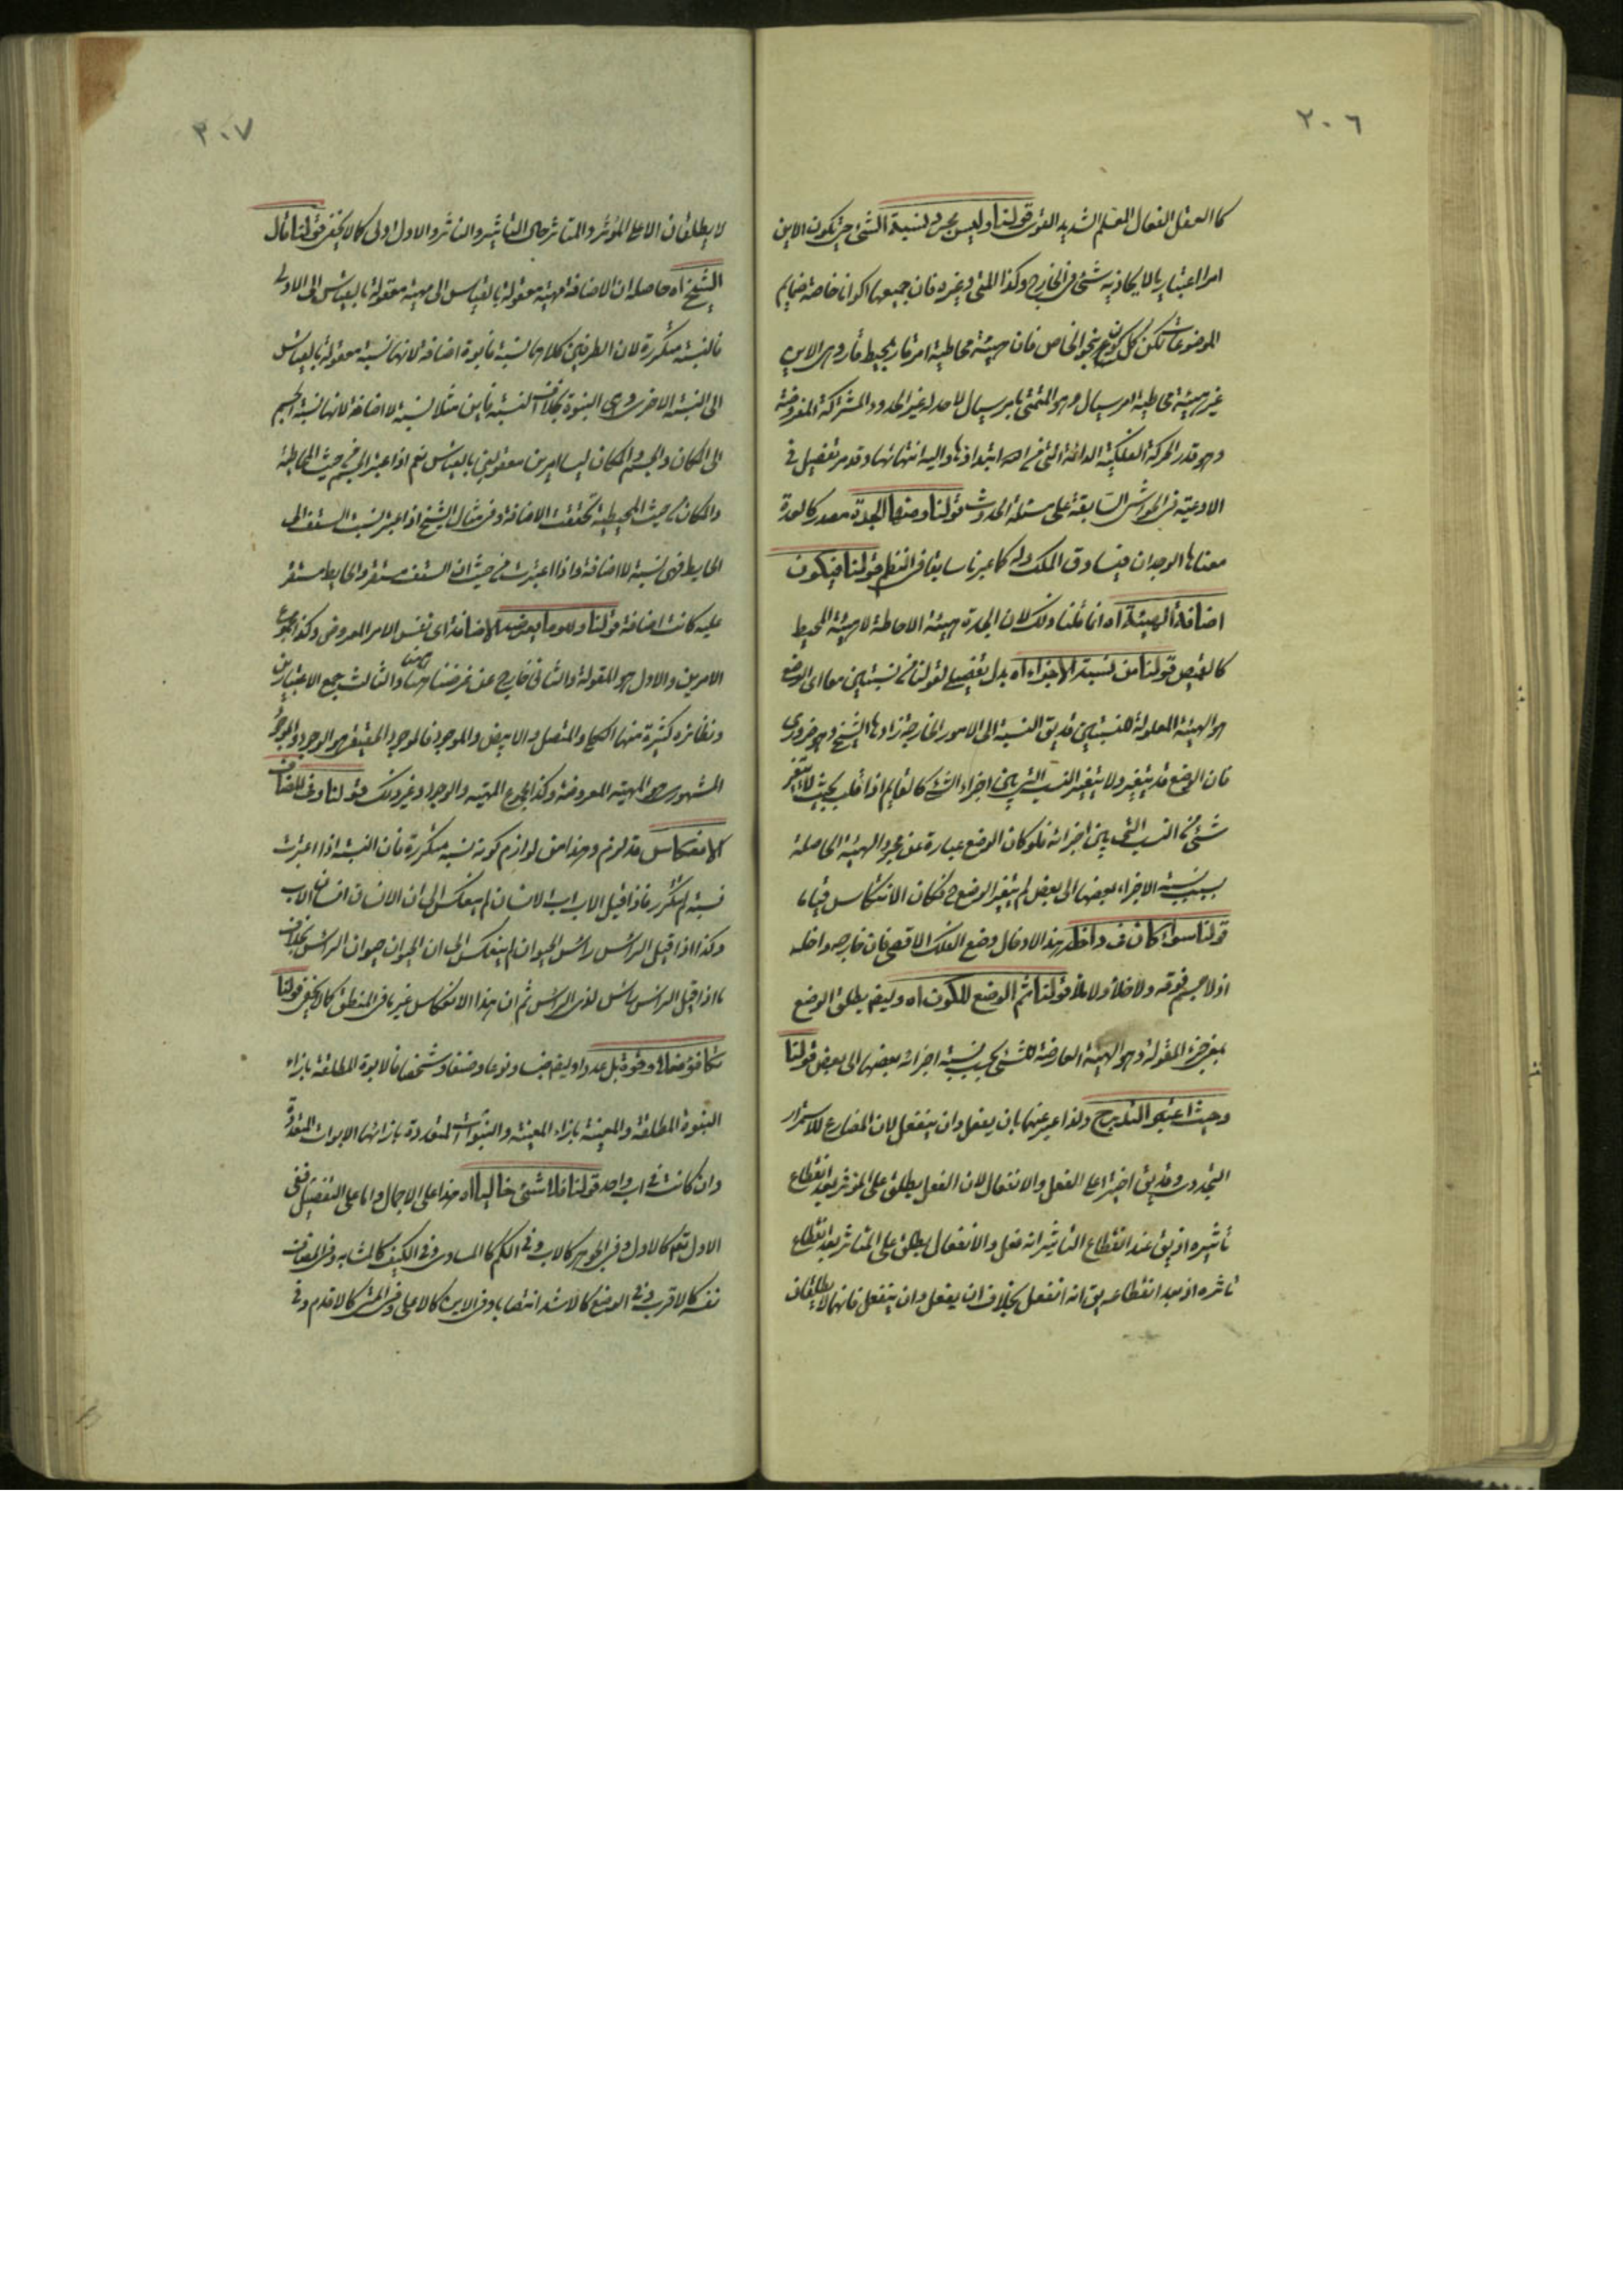 ٢٠٦
كالعقل الفعال المعلم الشديد القوى قولنا وليس مجرد نسبة الشئ حتى تكون الاين
امرا اعتباريا لا يحاذيه شئ فى الخارج وكذا المتى وغيره فان جميعها اكوانا خاصة ضمايم
الموضوعات لكن كل كون بنحو الخاص فان هيئة محاطية امر قار بمحيط قار وهى الاين
غير هيئة محاطية امر سيال وهو المتمتى بامر سيال لا حد له غير الحدود المشتركة المفروضة
وهو قدر الحركة الفلكية الدائمة التى من الله ابتداؤها واليه انتهائها وقد مر تفصيل فى
الاوعية فى الحواشى السابقة على مسئلة الحدوث قولنا ومنها الجدة مصدر كالعدة
معناها الوجدان فيساوق الملك وله كما عبرنا سابقا فى النظم قولنا فيكون
اضافة الهيئة اه انما قلنا ذلك لان الجدة هيئة الاحاطة لا هيئة المحيط
كالقميص قولنا من نسبة الاجزاء اه بدل تفصيلى لقولنا من نسبتين معا اى الوضع
هو الهيئة المعلولة للنسبتين قد يق النسبة الى الامور الخارجة زادها الشيخ وهو ضرورى
فان الوضع قد يتغير ولا يتغير النسب التى بين اجزاء الشئ كالقايم اذا قلب بحيث لا يتغير
شئ من النسب التى بين اجزائه فلو كان الوضع عبارة عن مجرد الهيئة الحاصلة
بسبب نسبة الاجزاء بعضها الى بعض لم يتغير الوضع ح فكان الانتكاس قياما
قولنا سواء كان فى داخله هذا لادخال وضع الفلك الاقصى فان خارجه داخله
اذ لا جسم فوقه ولا خلأ ولا ملأ قولنا ثم الوضع للكون اه وليفهم يطلق الوضع
بمعنى جزء المقولة وهو الهيئة العارضة للشئ بحسب نسبة اجزائه بعضها الى بعض قولنا
وحيث اعتبر التدريج ولذا عبر عنهما بان يفعل وان ينفعل لان المضارع للاستمرار
التجددى وقد يق اختيرا على الفعل والانفعال لان الفعل يطلق على المؤثر بعد انقطاع
تأثيره اذ يق عند انقطاع التأثير انه فعل والانفعال يطلق على المتاثر بعد انقطاع
تاثره اذ بعد انقطاعه يق انه انفعل بخلاف ان يفعل وان ينفعل فانهما لا يطلقان
٣٠٧
لا يطلقان الا على المؤثر والمتاثر حال التاثير والتاثر والاول اولى كما لا يخفى قولنا قال
الشيخ اه حاصله ان الاضافة مهية معقولة بالقياس الى مهية معقولة بالقياس الى الاولى
فالنسبة متكررة لان الطرفين كلاهما نسبة فابوة اضافة لانها نسبة معقولة بالقياس
الى النسبة الاخرى وهى البنوة بخلاف النسبة فاين مثلا نسبة لا اضافة لانها نسبة الجسم
الى المكان والجسم والمكان ليسا امرين معقولين بالقياس نعم اذا اعتبر الجسم من حيث المحاطية
والمكان من حيث المحيطية تحققت الاضافة وفى مثال الشيخ اذا اعتبر نسبة السقف الى
الحايط فهى نسبة لا اضافة واذا اعتبرت من حيث ان السقف مستقر والحايط مستقر
عليه كانت اضافة قولنا وللوما يعرضه الاضافة اى نفس الامر المعروض وكذا مجموع
الامرين والاول هو المقولة والثانى خارج عن غرضنا ههنا والثالث جمع الاعتبارين
ونظائره كثيرة منها الكلى والمتصل والابيض والموجود فالموجود الحقيقى هو الوجود والموجود
المشهورى هو المهية المعروضة وكذا مجموع المهية والوجود وغير ذلك قولنا وفى المضاف
الانعكاس قد لزم وهذا من لوازم كونه نسبة متكررة فان النسبة اذا اعتبرت
نسبة لم تتكرر فاذا قيل الاب اب الانسان لم ينعكس الى ان الانسان انسان الاب
وكذا اذا قيل الراس راس الحيوان لم ينعكس الى ان الحيوان حيوان الراس بخلاف
ما اذا قيل الراس راس لذى الراس ثم ان هذا الانعكاس غير ما فى المنطق كما لا يخفى قولنا
تكافؤ فعلا وقوة بل عددا وليفهم جنسا ونوعا وصنفا وشخصا فالابوة المطلقة بازاء
البنوة المطلقة والمعينة بازاء المعينة والبنوات المتعددة بازائها الابوات المتعددة
وان كانت فى اب واحد قولنا فلا شئ خاليا اه هذا على الاجمال واما على التفصيل ففى
الاول تعم كالاول وفى الجوهر كالاب وفى الكم كالمساوى وفى الكيف كالمشابه وفى المضاف
نفسه كالاقرب وفى الوضع كالاشد انتصابا وفى الاين كالاعلى وفى المتى كالاقدم وفى